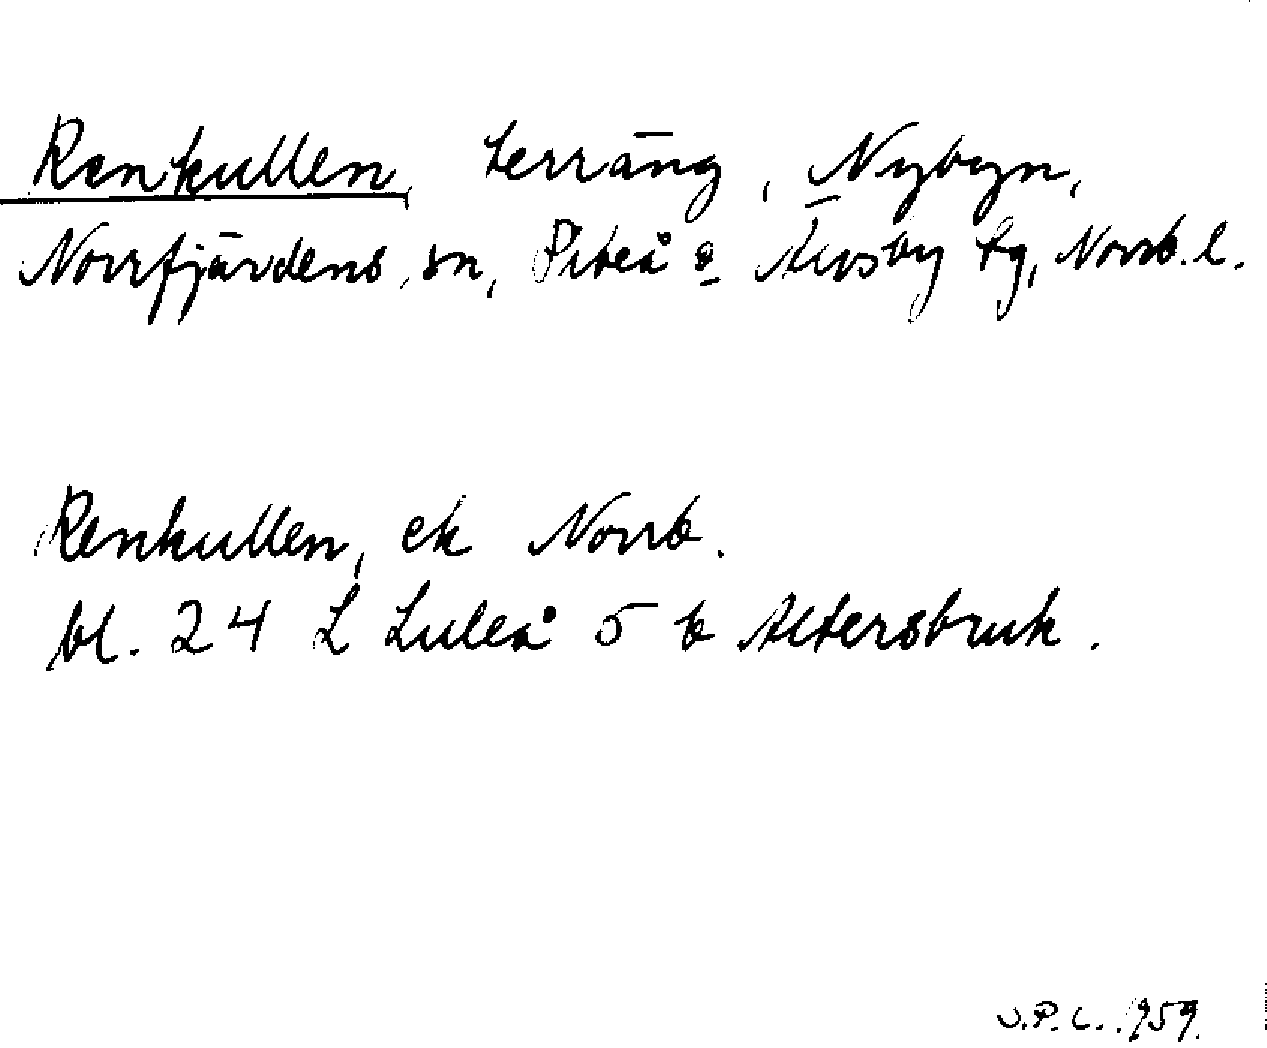 Renkullen, terräng, Nybyn,
Norrfjärdens sn, Piteå o Älvsby tg, Norrb. l.
Renkullen, ek Norrb.
bl. 24 L Luleå 5 b Altersbruk.
U.P.L. 1959.